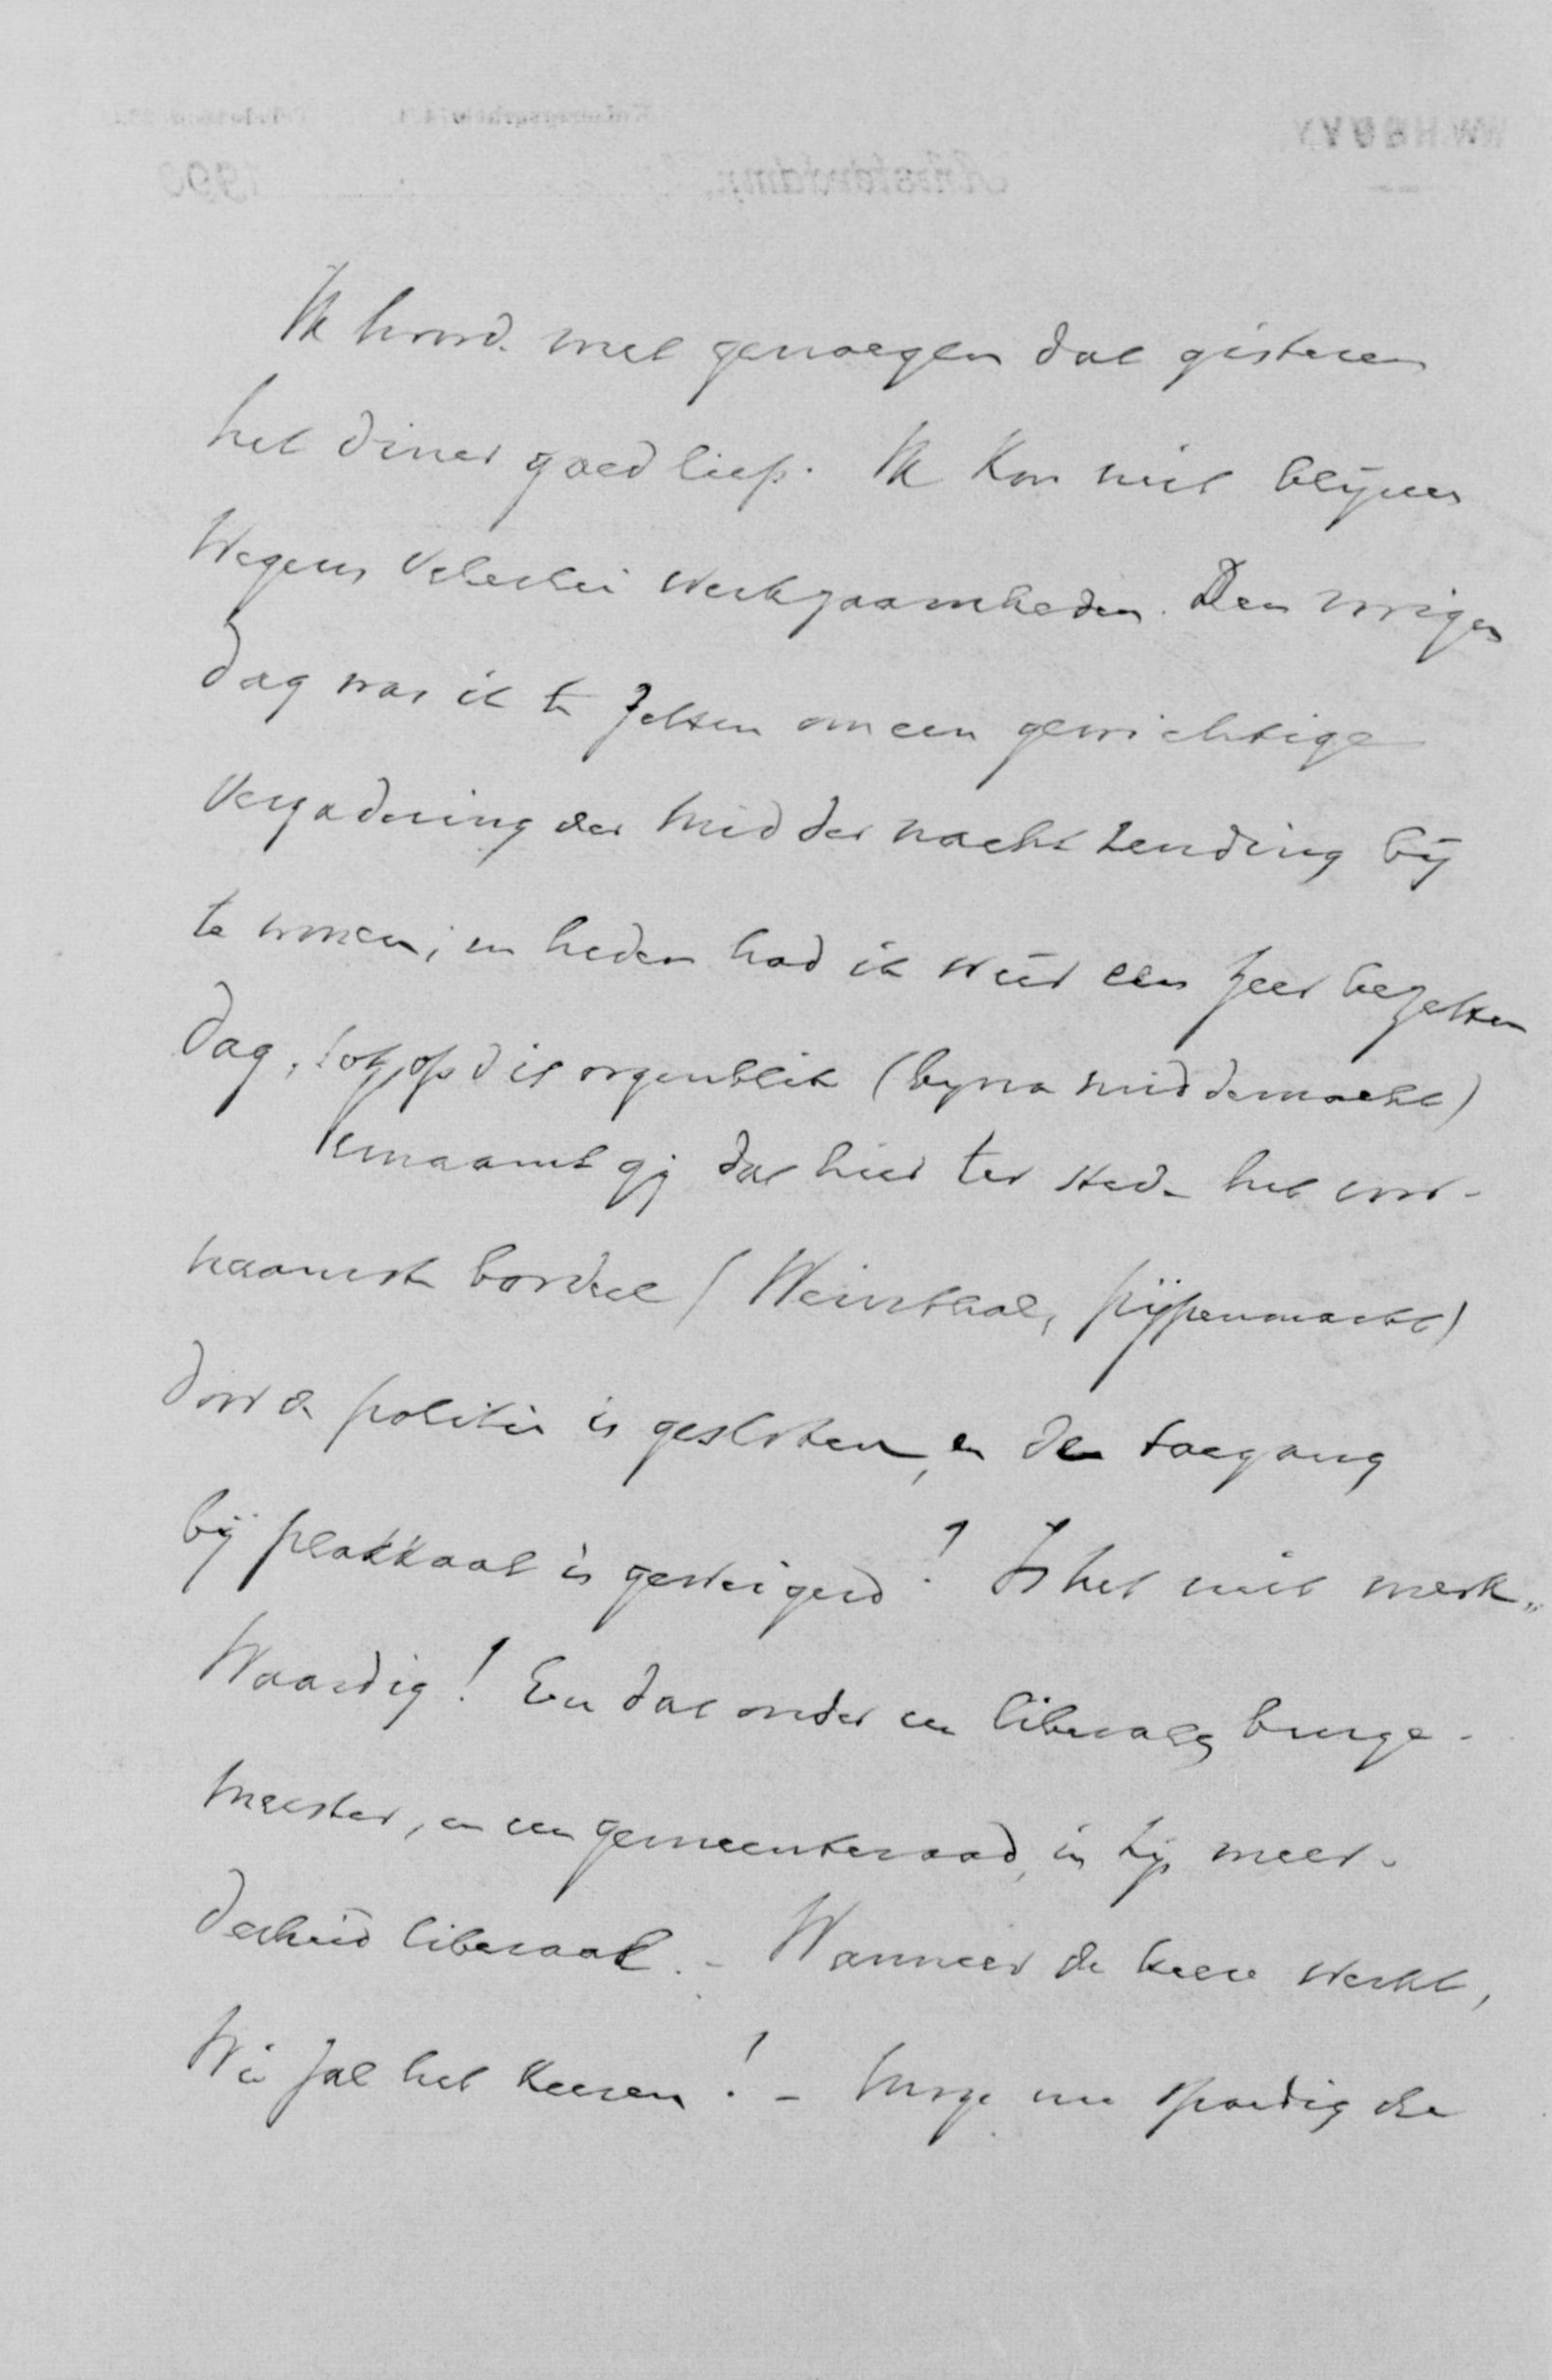 Ik hoorde met genoegen dat gisteren
het diner goed liep. Ik kon niet blijven
wegens velerlei werkzaamheden. Den vorigen
dag was ik te Zetten om een gewichtige
vergadering der Middernachtzending bij
te wonen; en heden had ik weêr een zeer bezetten
dag, tot op dit oogenblik (byna middernacht)
Vernaamt gij dat hier ter stede het voor-
naamste bordeel (Weinthal, Pijpenmarkt)
door de politie is gesloten, en den toegang
bij plakkaat is geweigerd? Is het niet merk„
waardig! En dat onder een liberalen burge-
meester, en een gemeenteraad, in zijn meer-
derheid liberaal. - Wanneer de Heere werkt,
wie zal het keeren! - Moge nu spoedig de